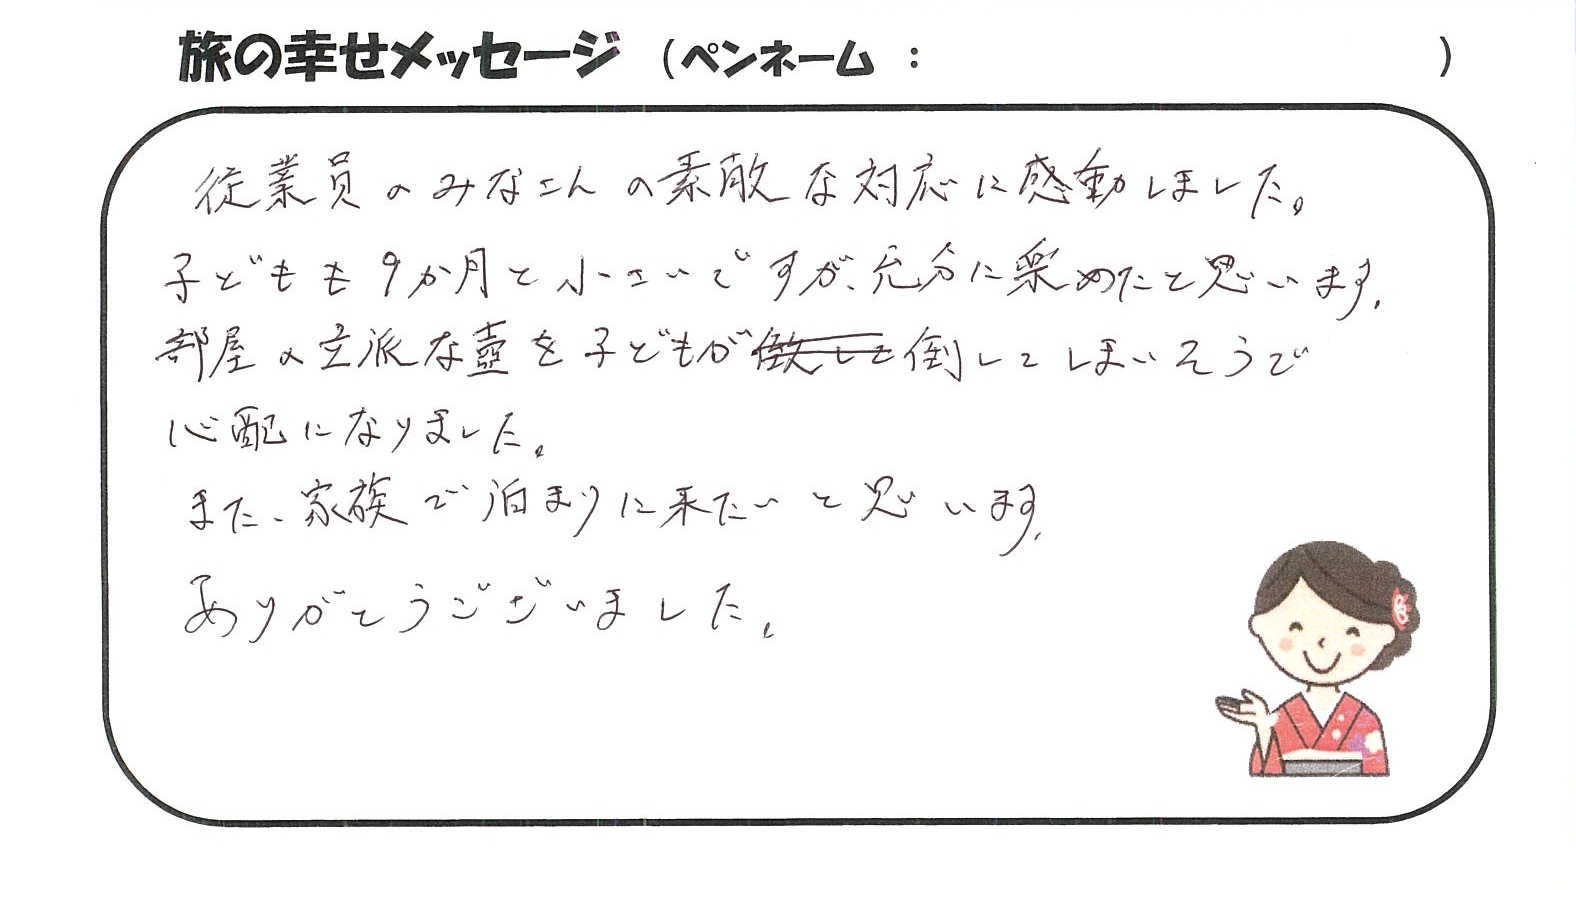 旅の幸せメッセージ （ペンネーム：　　　　　）
従業員のみなさんの素敵な対応に感動しました。
子どもも9か月と小さいですが、充分に楽めたと思います。
部屋の立派な壺を子どもが倒してしまいそうで
心配になりました。
また、家族で泊まりに来たいと思います。
ありがとうございました。